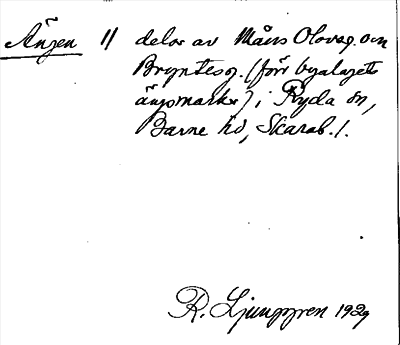 Ängen // delar av Måns Olovsg. och
Bryntesg. (förr byalagets
ängsmarker) i Ryda sn,
Barne hd, Skarab. l.
R. Ljunggren 1929